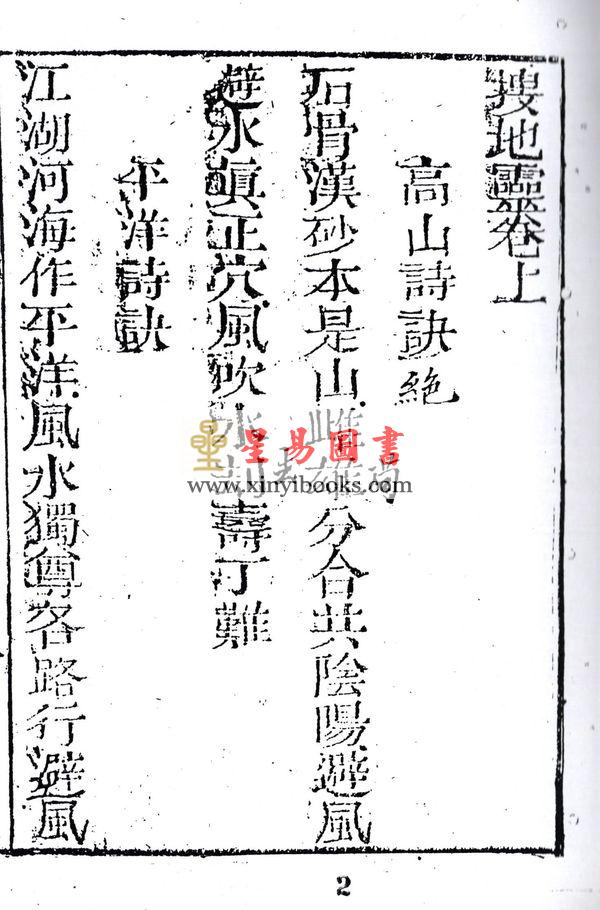 搜地靈卷上
高山詩訣絶
石骨漢砂本是山雌雄分合共陰陽避風
避水眞正穴風吹水壽丁難
平洋詩訣
江湖河海作平洋風水獨尊客路行避風
星易圖書
www.xinyibooks.com
2